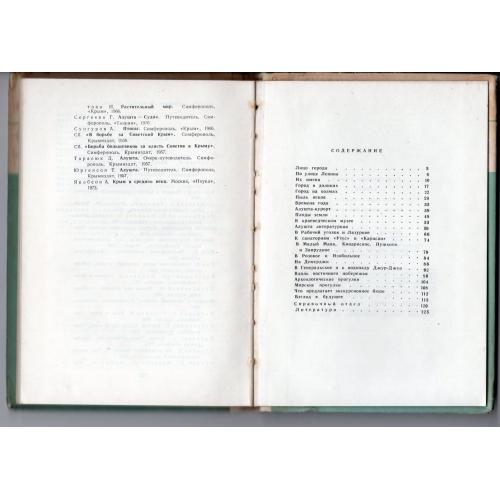 това И. Растительный мир. Симферополь,
«Крым», 1966.
Сергеева Г. Алушта — Судак. Путеводитель. Симферополь, «Таврия», 1976.
Сб. «В борьбе за Советский Крым». Симферополь,
Крымиздат, 1958.
Сб. «Борьба большевиков за власть Советов в Крыму».
Симферополь, Крымиздат, 1957.
Тарасюк Д. Алушта. Очерк-путеводитель. Симферополь, Крымиздат, 1957.
Юргенсон Е. Алушта. Путеводитель. Симферополь,
Крымиздат, 1957.
Якобсон А. Крым в средние века. Москва, «Наука»,
1973.
СОДЕРЖАНИЕ
Лицо города
По улице Ленина
Их имена
Город в долинах
Город на холмах
Пыль веков
Времена года
Алушта-курорт
Плоды земли
В краеведческом музее
Алушта литературная
В Рабочий уголок и Лазурное
К санаториям «Утес» и «Карасан»
В Малый Маяк, Кипарисное, Пушкино
и Запрудное
В Розовое и Изобильное
На Демерджи
В Генеральское и к водопаду Джур-Джур
Вдоль восточного побережья
Археологические прогулки
Морские прогулки
Что предлагает экскурсионное бюро
Взгляд в будущее
Справочный отдел
Литература